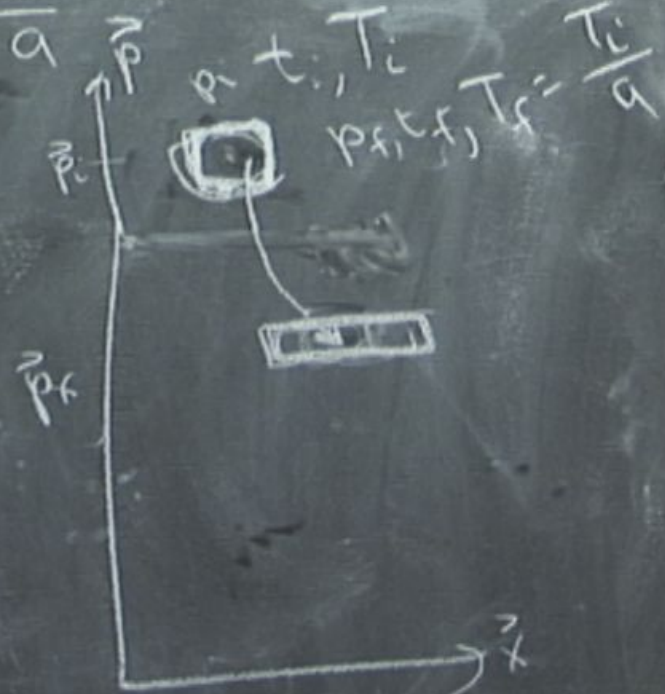 a
p⃗
p_i t_i, T_i
p_f, t_f, T_f = T_i/a
p⃗_i
p⃗_f
x⃗